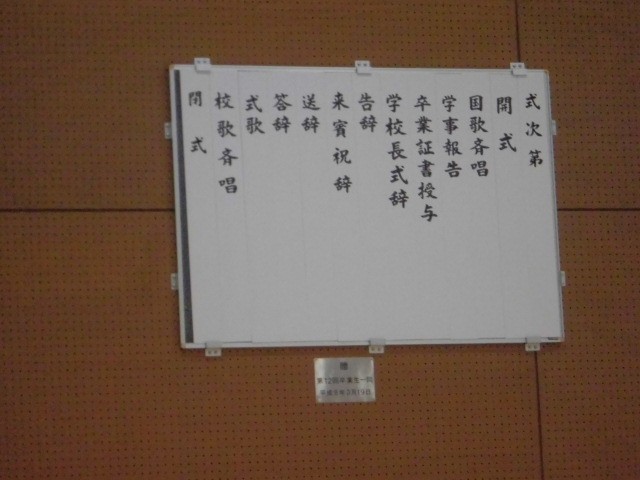 式次第
開式
国歌斉唱
学事報告
卒業証書授与
学校長式辞
告辞
来賓祝辞
送辞
答辞
式歌
校歌斉唱
閉式
贈
第12回卒業生一同